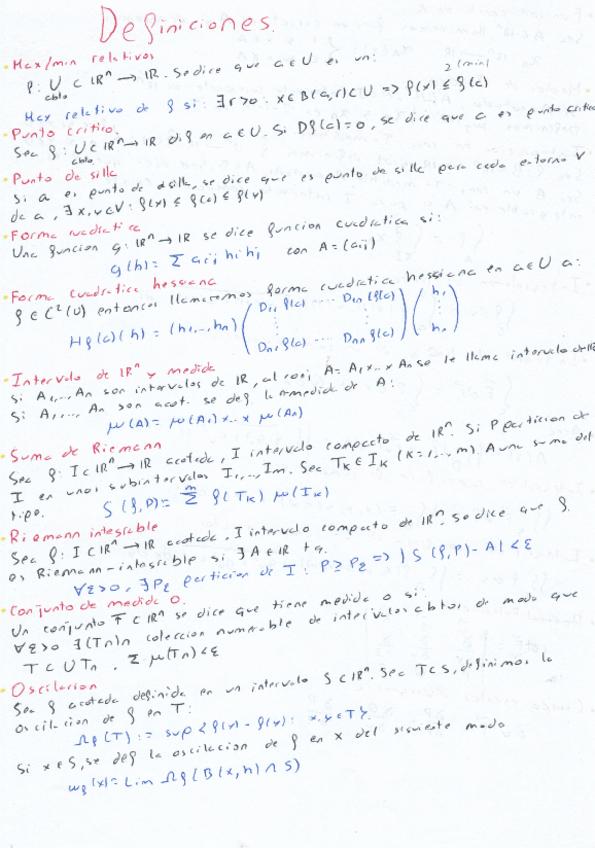 Definiciones.
• Max/min relativos
f: U ⊂ IRⁿ → IR. Se dice que a∈U es un:
abto
≥ (min)
Max relativo de f si: ∃r>0: x∈B(a,r)⊂U => f(x) ≤ f(a)
• Punto critico.
Sea f: U⊂IRⁿ → IR dif en a∈U. Si Df(a)=0, se dice que a es punto critico
abto
• Punto de silla
Si a es punto de silla, se dice que es punto de silla para cada entorno V
de a, ∃x,y∈V: f(x) ≤ f(a) ≤ f(y)
• Forma cuadratica
Una funcion q: IRⁿ → IR se dice funcion cuadratica si:
q(h) = Σ aij hi hj con A = (aij)
• Forma cuadratica hessiana
f ∈ C²(U) entonces llamaremos forma cuadratica hessiana en a∈U a:
Hf(a)(h) = (h1,..,hn) (D11 f(a) ..... D1n f(a)) (h1)
⋮ ⋮ ⋮
(Dn1 f(a) .... Dnn f(a)) (hn)
• Intervalo de IRⁿ y medida
Si A1,..., An son intervalos de IR, al conj A = A1 x..x An se le llama intervalo de IRⁿ
Si A1,..., An son acot. se def la medida de A:
μ(A) = μ(A1) x..x μ(An)
• Suma de Riemann
Sea f: I⊂IRⁿ → IR acotada, I intervalo compacto de IRⁿ. Si P particion de
I en unos subintervalos I1,.., Im. Sea TK∈IK (K=1,..., m) A una suma del
tipo.
S(f,P) = Σ^m f(TK) μ(IK)
• Riemann integrable
Sea f: I⊂IRⁿ → IR acotada, I intervalo compacto de IRⁿ. Se dice que f.
es Riemann-integrable si ∃A∈IR tq.
∀ε>0, ∃Pε particion de I: P≥Pε => |S(f,P) - A| < ε
• Conjunto de medida 0.
Un conjunto T⊂IRⁿ se dice que tiene medida 0 si:
∀ε>0 ∃(Tn)n coleccion numerable de intervalos abtos, de modo que
T⊂∪Tn, Σ μ(Tn)<ε
• Oscilacion
Sea f acotada definida en un intervalo S⊂IRⁿ. Sea T⊂S, definimos la
oscilacion de f en T:
Ωf(T) := sup{f(x) - f(y): x,y∈T}.
Si x∈S, se def la oscilacion de f en x del siguiente modo
wf(x) = Lim Ωf(B(x,h)∩S)